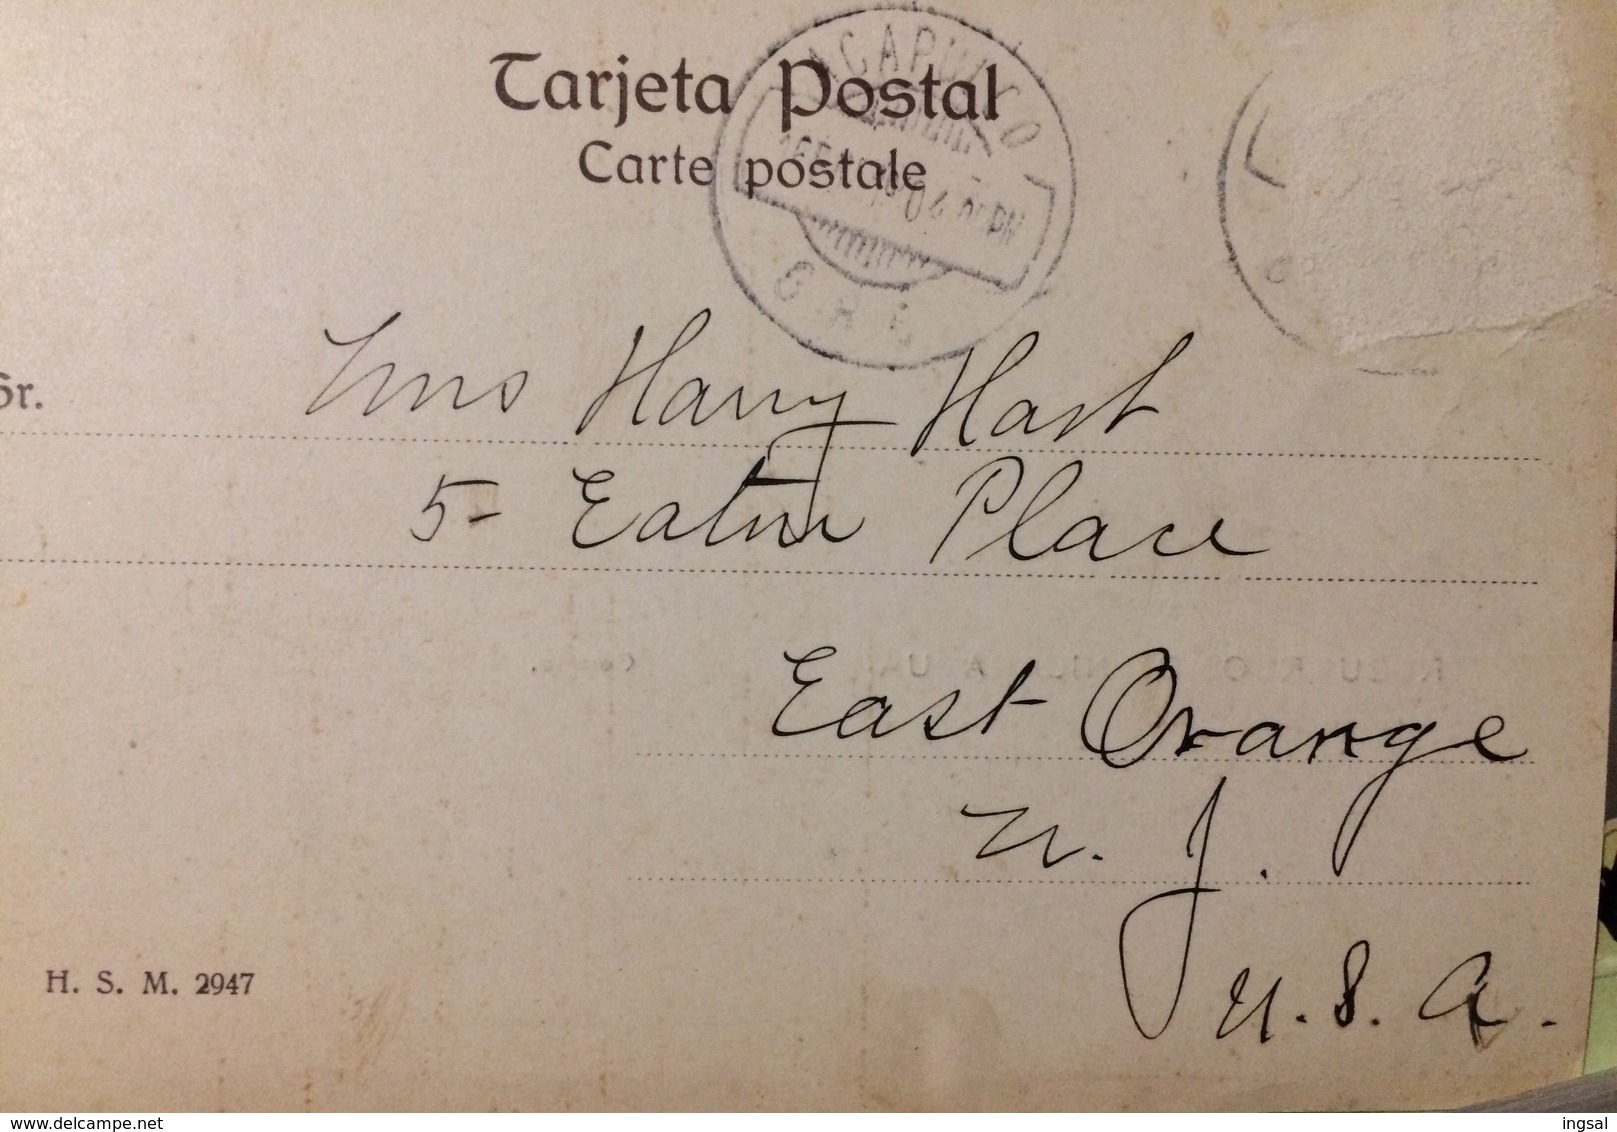 Tarjeta Postal
Carte postale
ACAPULCO
Sr.
Mrs Harry Hart
5- Eaton Place
East Orange
N. J.
U. S. A.
H. S. M. 2947
www.delcampe.net
ingsal